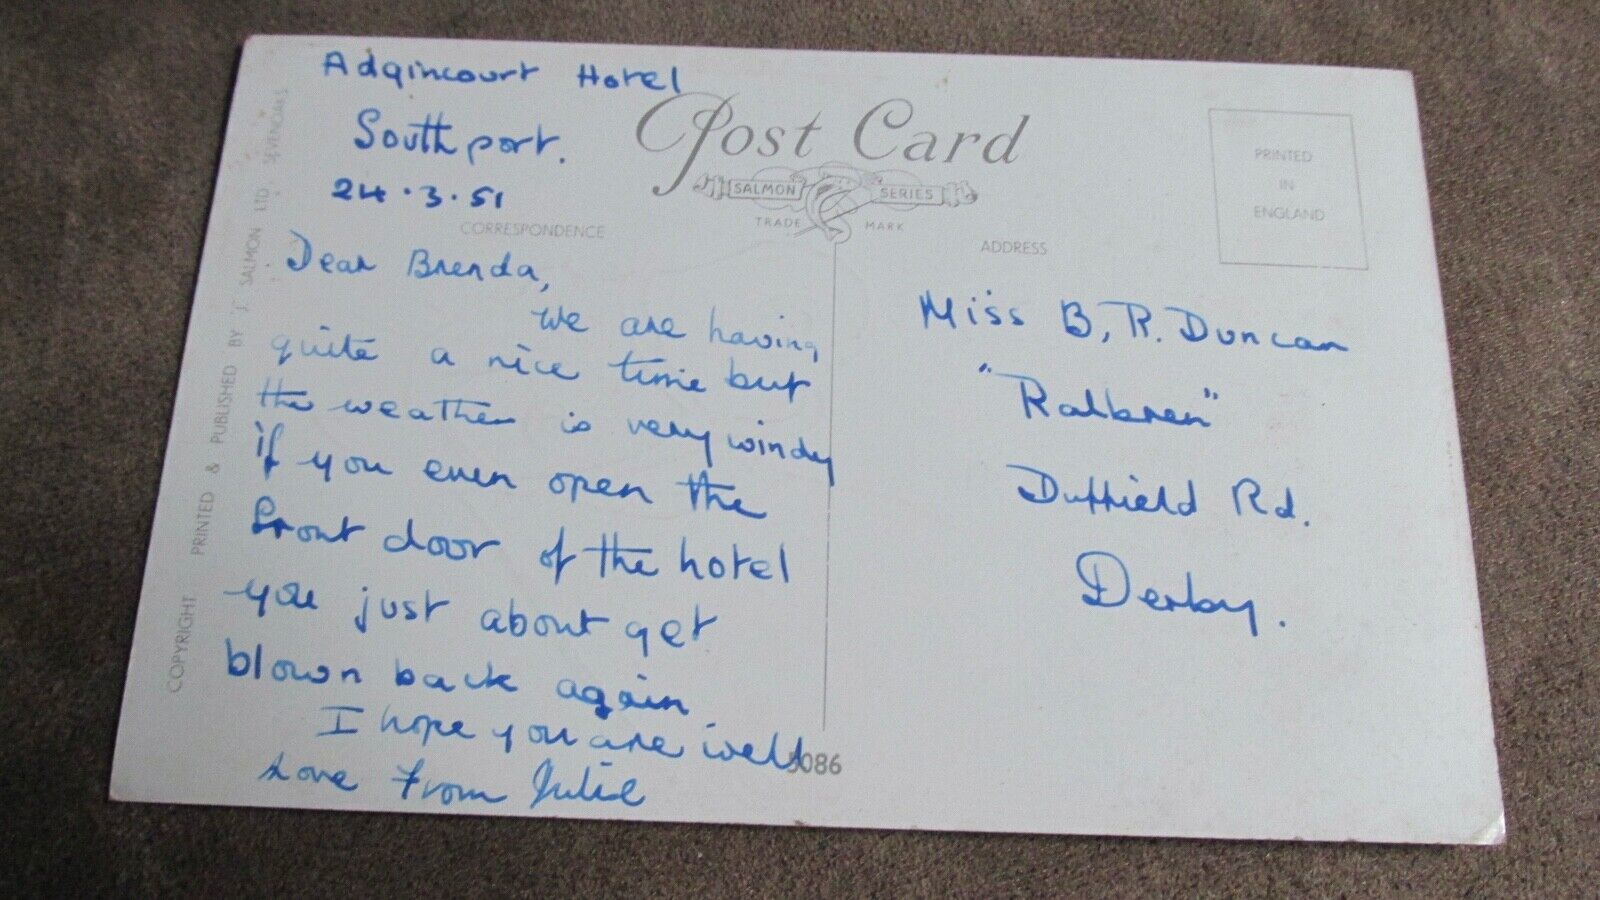 Adgincourt Hotel
Southport.
24.3.51
Post Card
SALMON SERIES
TRADE MARK
CORRESPONDENCE
ADDRESS
PRINTED
IN
ENGLAND
Dear Brenda,
We are having
quite a nice time but
the weather is very windy
if you even open the
front door of the hotel
you just about get
blown back again.
I hope you are well
Love from Julie
Miss B, R. Duncan
"Ralbren"
Duffield Rd.
Derby.
5086
COPYRIGHT PRINTED & PUBLISHED BY J. SALMON LTD. SEVENOAKS